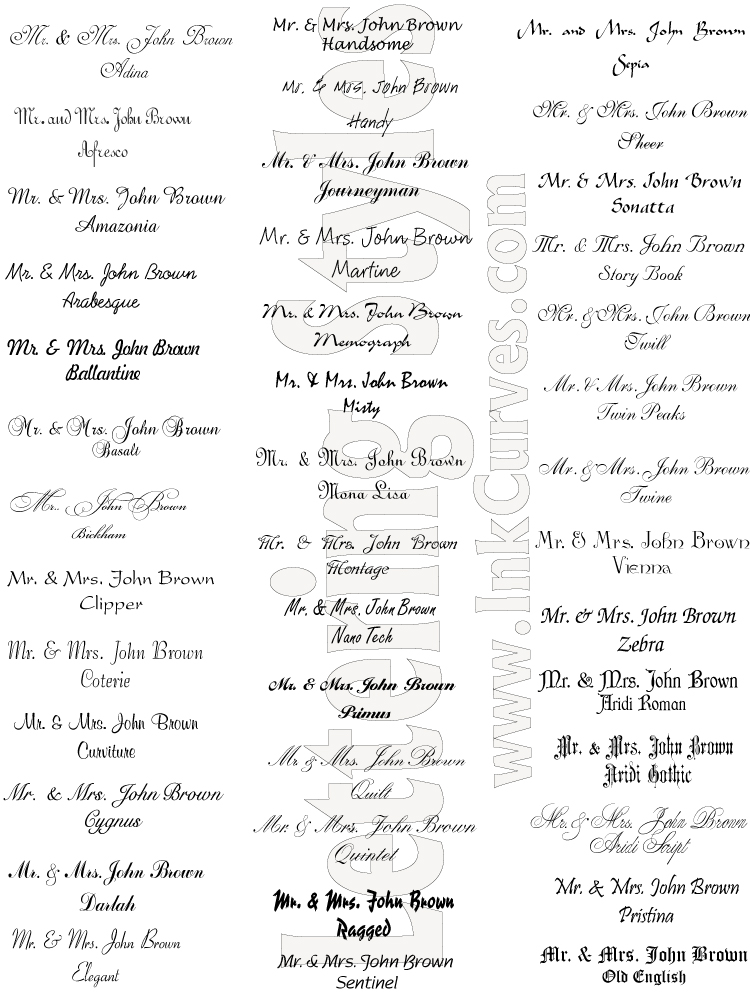 Mr. & Mrs. John Brown
Adina
Mr. and Mrs. John Brown
Afresco
Mr. & Mrs. John Brown
Amazonia
Mr. & Mrs. John Brown
Arabesque
Mr. & Mrs. John Brown
Ballantine
Mr. & Mrs. John Brown
Basalt
Mr.. John Brown
Bickham
Mr. & Mrs. John Brown
Clipper
Mr. & Mrs. John Brown
Coterie
Mr. & Mrs. John Brown
Curviture
Mr. & Mrs. John Brown
Cygnus
Mr. & Mrs. John Brown
Darlah
Mr. & Mrs. John Brown
Elegant
Mr. & Mrs. John Brown
Handsome
Mr. & Mrs. John Brown
Handy
Mr. & Mrs. John Brown
Journeyman
Mr. & Mrs. John Brown
Martine
Mr. & Mrs. John Brown
Memograph
Mr. & Mrs. John Brown
Misty
Mr. & Mrs. John Brown
Mona Lisa
Mr. & Mrs. John Brown
Montage
Mr. & Mrs. John Brown
Nano Tech
Mr. & Mrs. John Brown
Primus
Mr & Mrs. John Brown
Quilt
Mr. & Mrs. John Brown
Quintet
Mr. & Mrs. John Brown
Ragged
Mr. & Mrs. John Brown
Sentinel
Mr. and Mrs. John Brown
Sepia
Mr. & Mrs. John Brown
Sheer
Mr. & Mrs. John Brown
Sonatta
Mr. & Mrs. John Brown
Story Book
Mr. & Mrs. John Brown
Twill
Mr. & Mrs. John Brown
Twin Peaks
Mr. & Mrs. John Brown
Twine
Mr. & Mrs. John Brown
Vienna
Mr. & Mrs. John Brown
Zebra
Mr. & Mrs. John Brown
Aridi Roman
Mr. & Mrs. John Brown
Aridi Gothic
Mr. & Mrs. John Brown
Aridi Script
Mr. & Mrs. John Brown
Pristina
Mr. & Mrs. John Brown
Old English
Lettering Styles
www.InkCurves.com